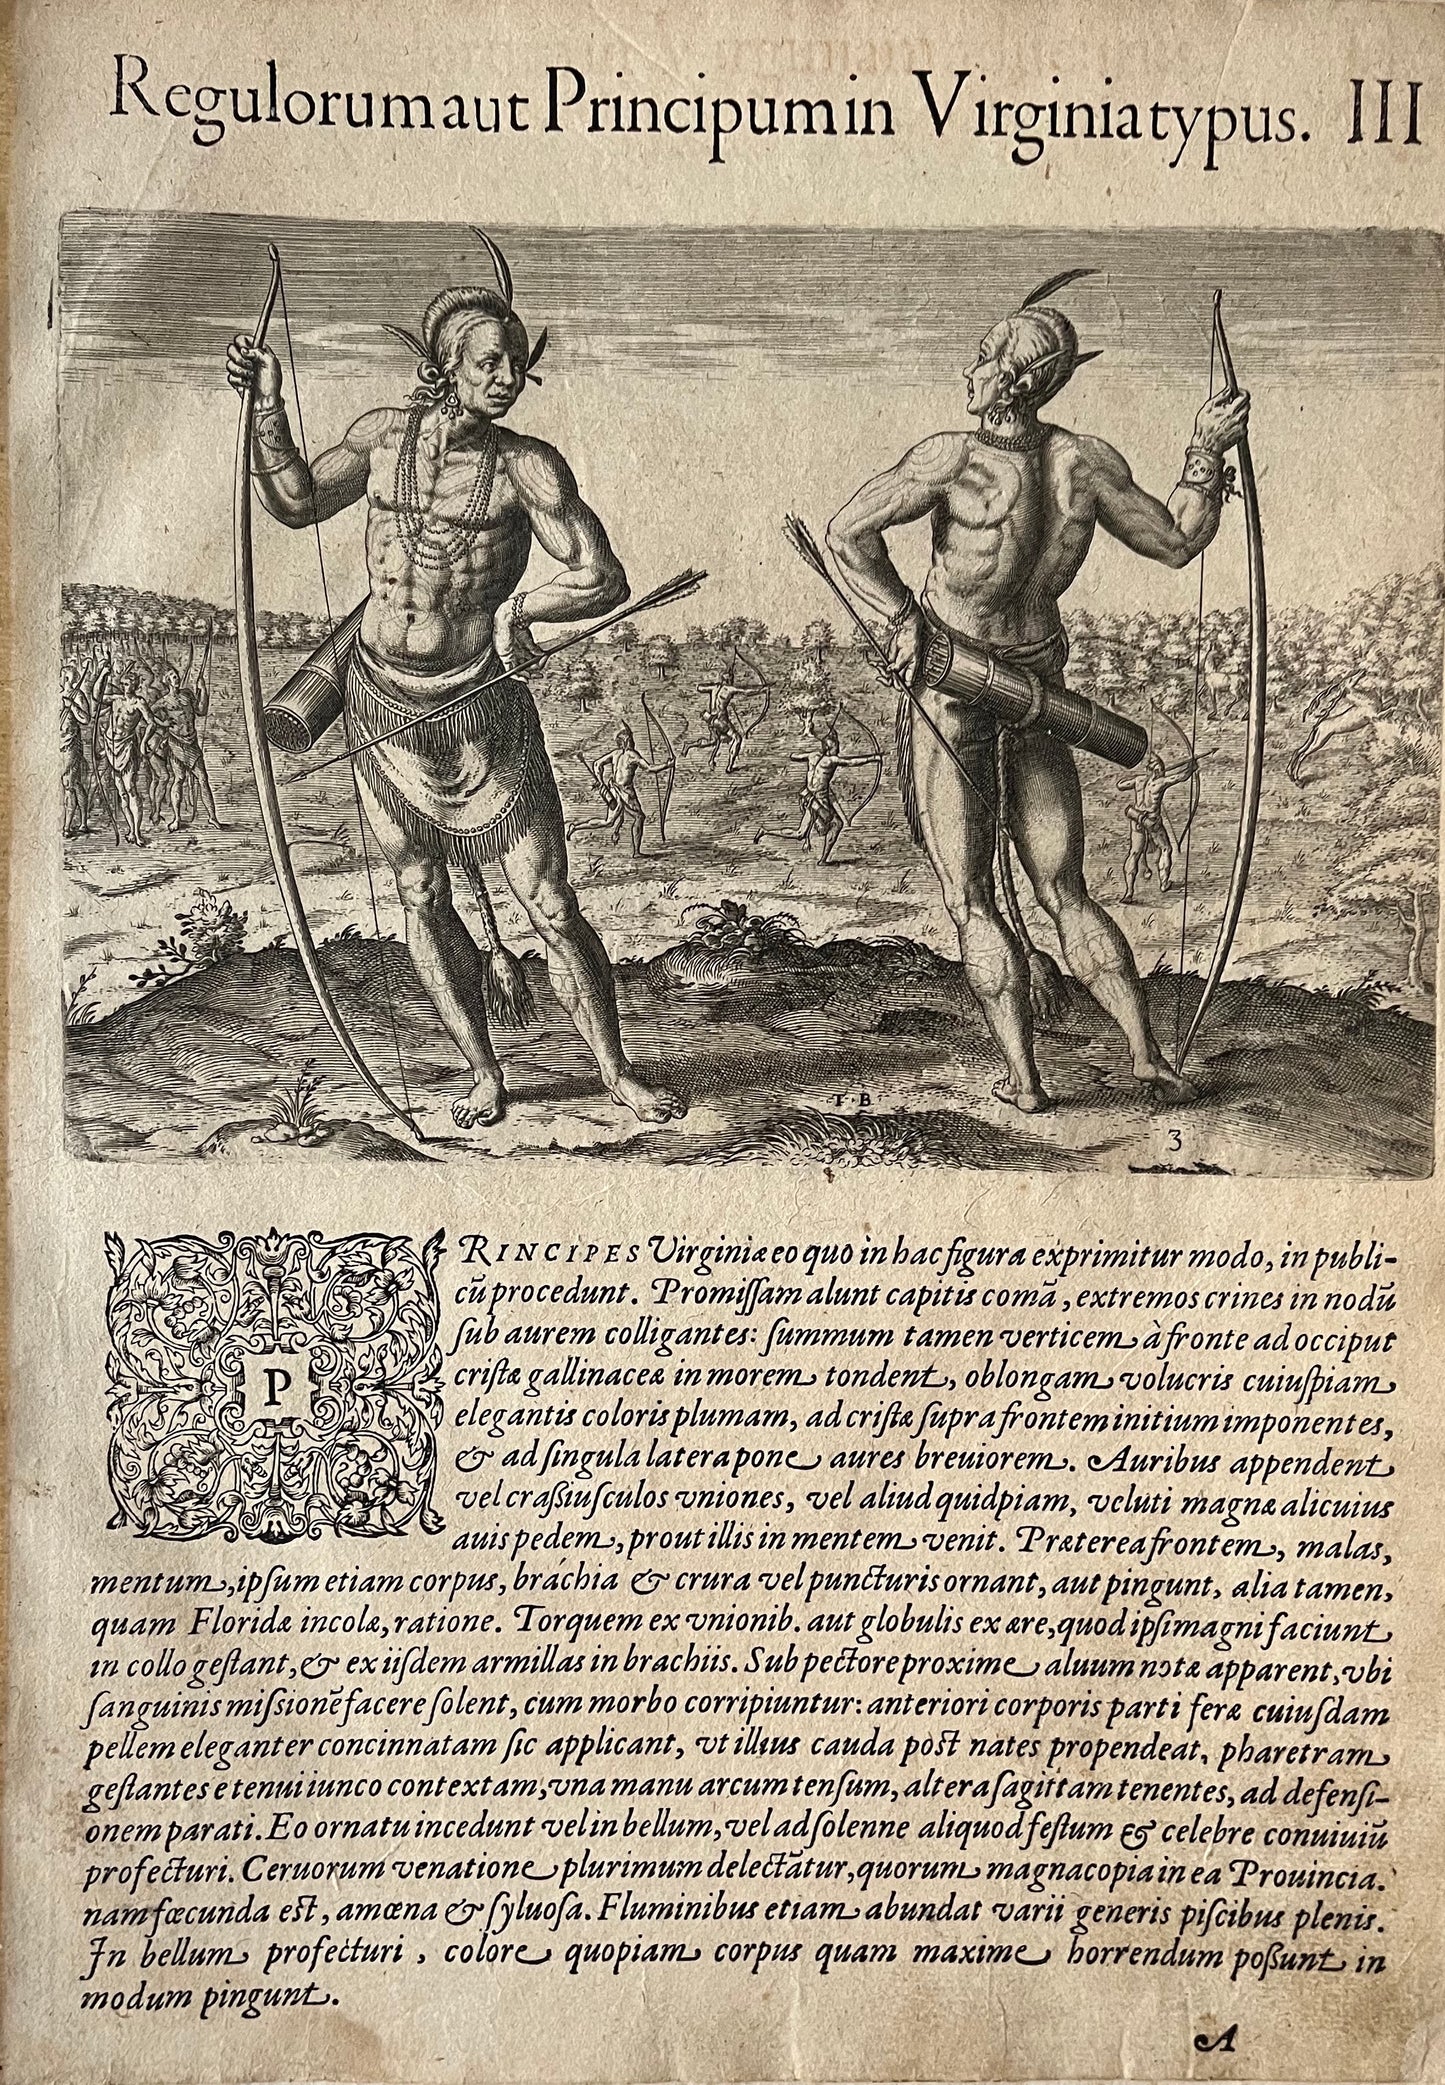 Regulorum aut Principum in Virginia typus. III
T·B
3
PRINCIPES Virginiæ eo quo in hac figura exprimitur modo, in publi-
cũ procedunt. Promiſſam alunt capitis comã, extremos crines in nodũ
ſub aurem colligantes: ſummum tamen verticem à fronte ad occiput
criſtæ gallinaceæ in morem tondent, oblongam volucris cuiuſpiam
elegantis coloris plumam, ad criſtæ ſupra frontem initium imponentes,
& ad ſingula latera pone aures breuiorem. Auribus appendent
vel craßiuſculos vniones, vel aliud quidpiam, veluti magnæ alicuius
auis pedem, prout illis in mentem venit. Præterea frontem, malas,
mentum, ipſum etiam corpus, bráchia & crura vel puncturis ornant, aut pingunt, alia tamen,
quam Floridæ incolæ, ratione. Torquem ex vnionib. aut globulis ex ære, quod ipſi magni faciunt
in collo geſtant, & ex iiſdem armillas in brachiis. Sub pectore proxime aluum notæ apparent, vbi
ſanguinis miſsionẽ facere ſolent, cum morbo corripiuntur: anteriori corporis parti feræ cuiuſdam
pellem eleganter concinnatam ſic applicant, vt illius cauda poſt nates propendeat, pharetram
geſtantes e tenui iunco contextam, vna manu arcum tenſum, altera ſagittam tenentes, ad defenſi-
onem parati. Eo ornatu incedunt vel in bellum, vel ad ſolenne aliquod feſtum & celebre conuiuiũ
profecturi. Ceruorum venatione plurimum delectãtur, quorum magna copia in ea Prouincia.
nam fœcunda eſt, amœna & ſyluoſa. Fluminibus etiam abundat varii generis piſcibus plenis.
In bellum profecturi, colore quopiam corpus quam maxime horrendum poßunt in
modum pingunt.
A